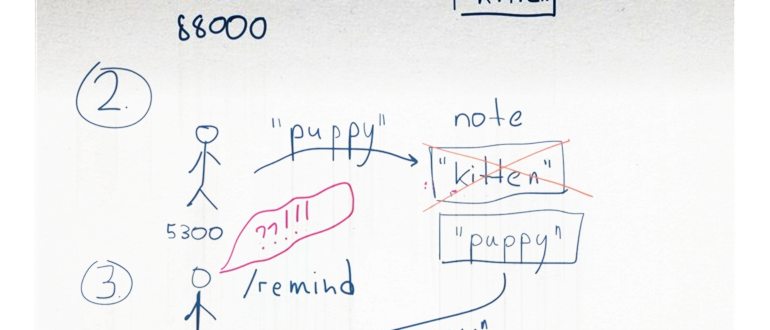 88000
2.
"puppy"
note
"kitten"
5300
??!!!
"puppy"
3.
/remind